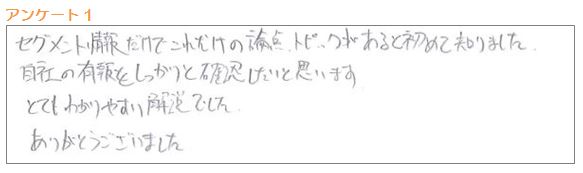 アンケート1
セグメント情報だけでこれだけの論点、トピックがあると初めて知りました。
自社の有報をしっかりと確認したいと思います
とてもわかりやすい解説でした
ありがとうございました